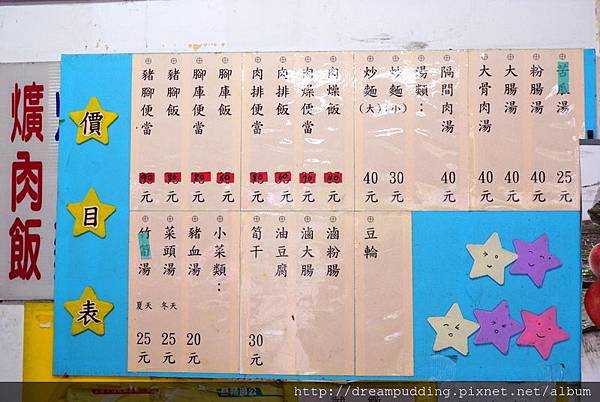 價目表
爌肉飯
豬腳便當 元
豬腳飯 元
腳庫便當 元
腳庫飯 元
肉排便當 元
肉排飯 元
肉燥便當 元
肉燥飯 元
炒麵(大) 40元
炒麵(小) 30元
湯類：
隔間肉湯 40元
大骨肉湯 40元
大腸湯 40元
粉腸湯 40元
苦瓜湯 25元
竹筍湯 夏天 25元
菜頭湯 冬天 25元
豬血湯 20元
小菜類：
筍干 30元
油豆腐
滷大腸
滷粉腸
豆輪
http://dreampudding.pixnet.net/album